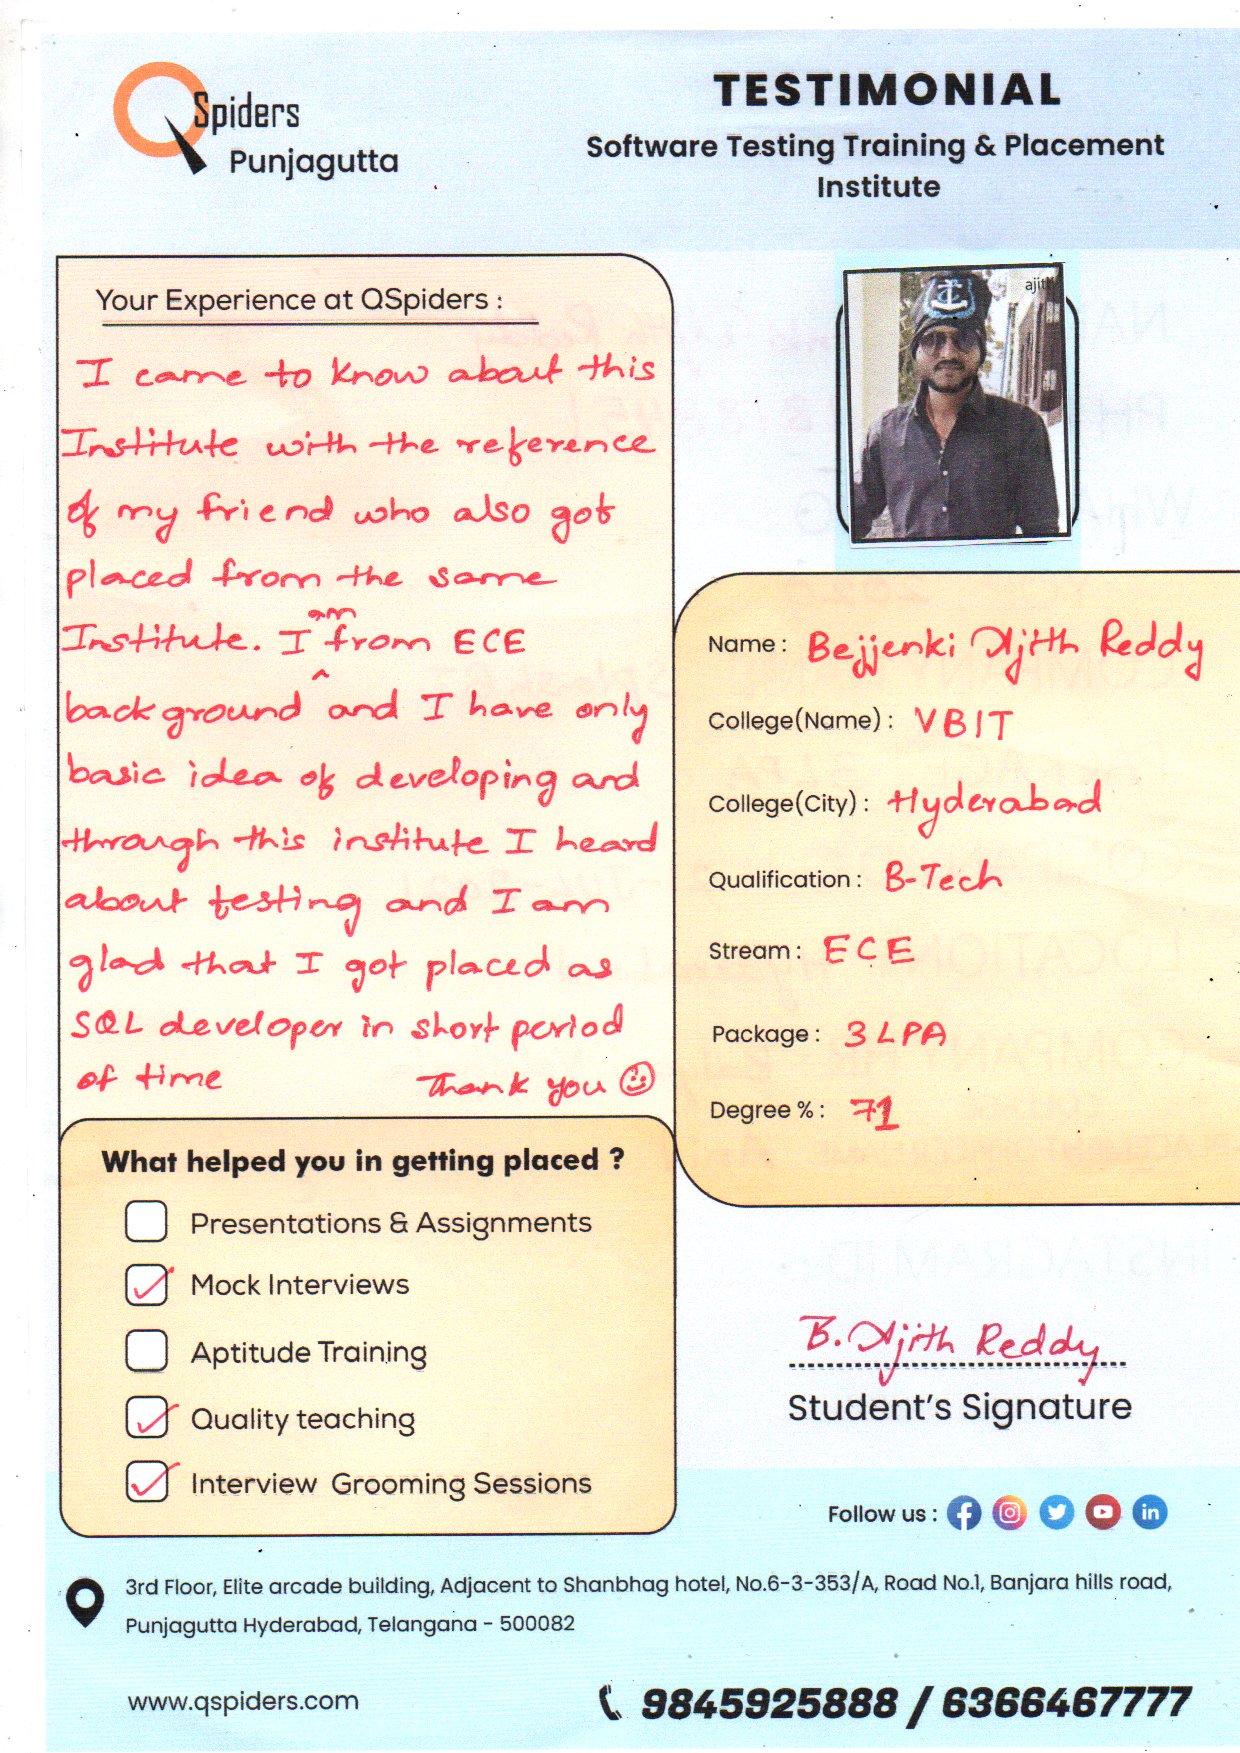 QSpiders
Punjagutta
TESTIMONIAL
Software Testing Training & Placement
Institute
Your Experience at QSpiders :
I came to know about this
Institute with the reference
of my friend who also got
placed from the same
Institute. I am from ECE
background and I have only
basic idea of developing and
through this institute I heard
about testing and I am
glad that I got placed as
SQL developer in short period
of time Thank you ☺
ajith
Name : Bejjenki Ajith Reddy
College(Name) : VBIT
College(City) : Hyderabad
Qualification : B-Tech
Stream : ECE
Package : 3 LPA
Degree % : 71
What helped you in getting placed ?
Presentations & Assignments
Mock Interviews
Aptitude Training
Quality teaching
Interview Grooming Sessions
B. Ajith Reddy
Student's Signature
Follow us :
3rd Floor, Elite arcade building, Adjacent to Shanbhag hotel, No.6-3-353/A, Road No.1, Banjara hills road,
Punjagutta Hyderabad, Telangana - 500082
www.qspiders.com
9845925888 / 6366467777